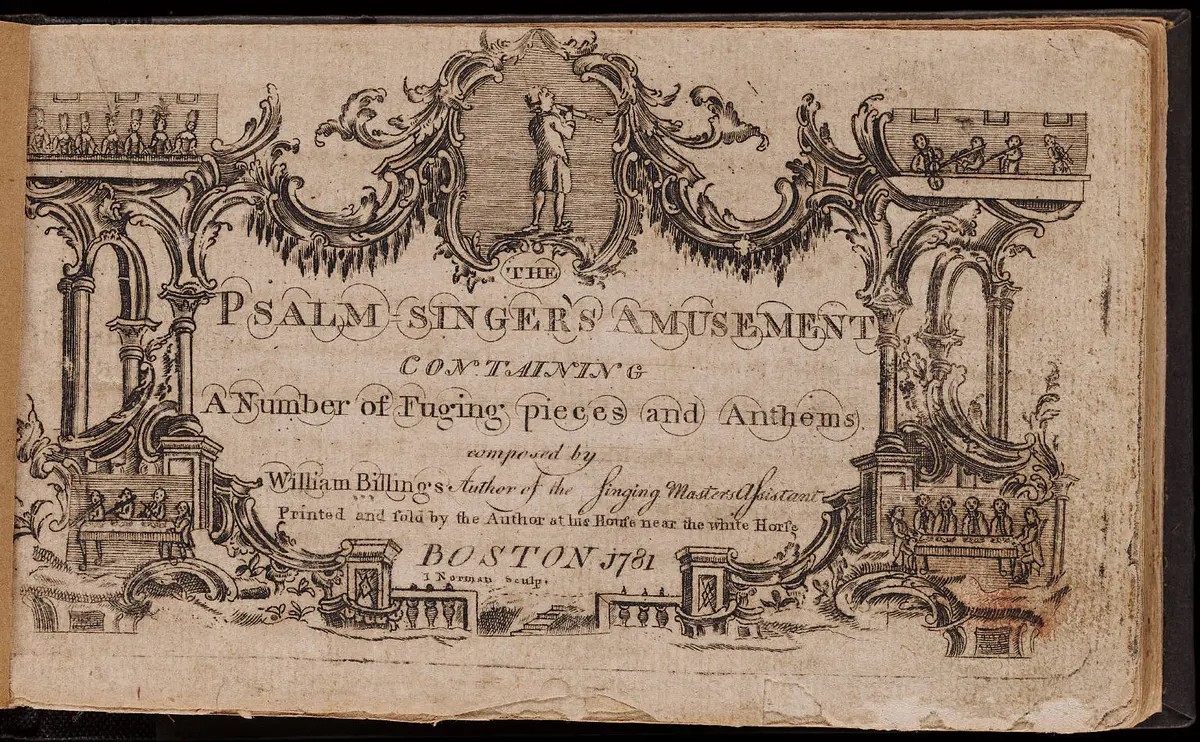 THE
PSALM-SINGER'S AMUSEMENT
CONTAINING
A Number of Fuging pieces and Anthems.
composed by
William Billings Author of the Singing Masters Aſsistant
Printed and ſold by the Author at his Houſe near the white Horſe
BOSTON 1781
I Norman Sculp.